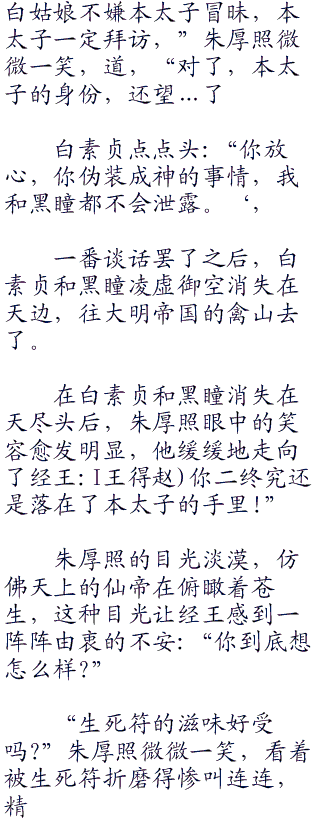 白姑娘不嫌本太子冒昧，本
太子一定拜访，”朱厚照微
微一笑，道，“对了，本太
子的身份，还望…了
白素贞点点头：“你放
心，你伪装成神的事情，我
和黑瞳都不会泄露。‘，
一番谈话罢了之后，白
素贞和黑瞳凌虚御空消失在
天边，往大明帝国的禽山去
了。
在白素贞和黑瞳消失在
天尽头后，朱厚照眼中的笑
容愈发明显，他缓缓地走向
了经王：I王得赵）你二终究还
是落在了本太子的手里！”
朱厚照的目光淡漠，仿
佛天上的仙帝在俯瞰着苍
生，这种目光让经王感到一
阵阵由衷的不安：“你到底想
怎么样？”
“生死符的滋味好受
吗？”朱厚照微微一笑，看着
被生死符折磨得惨叫连连，
精